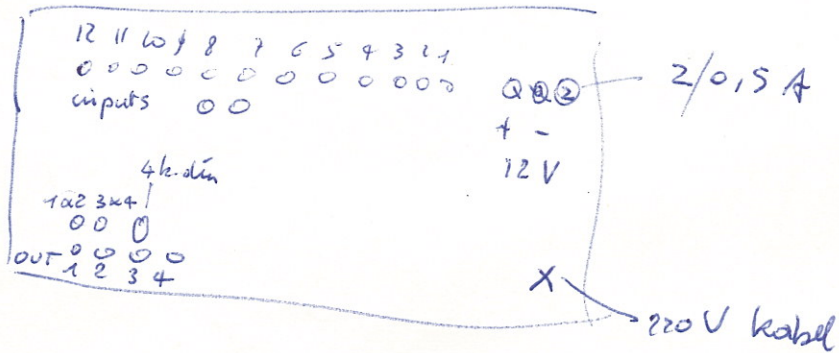 12 11 10 9 8 7 6 5 4 3 2 1
inputs
2/0,5 A
+ -
12 V
4k. din
1x2 3x4
OUT
1 2 3 4
X
220V kabel